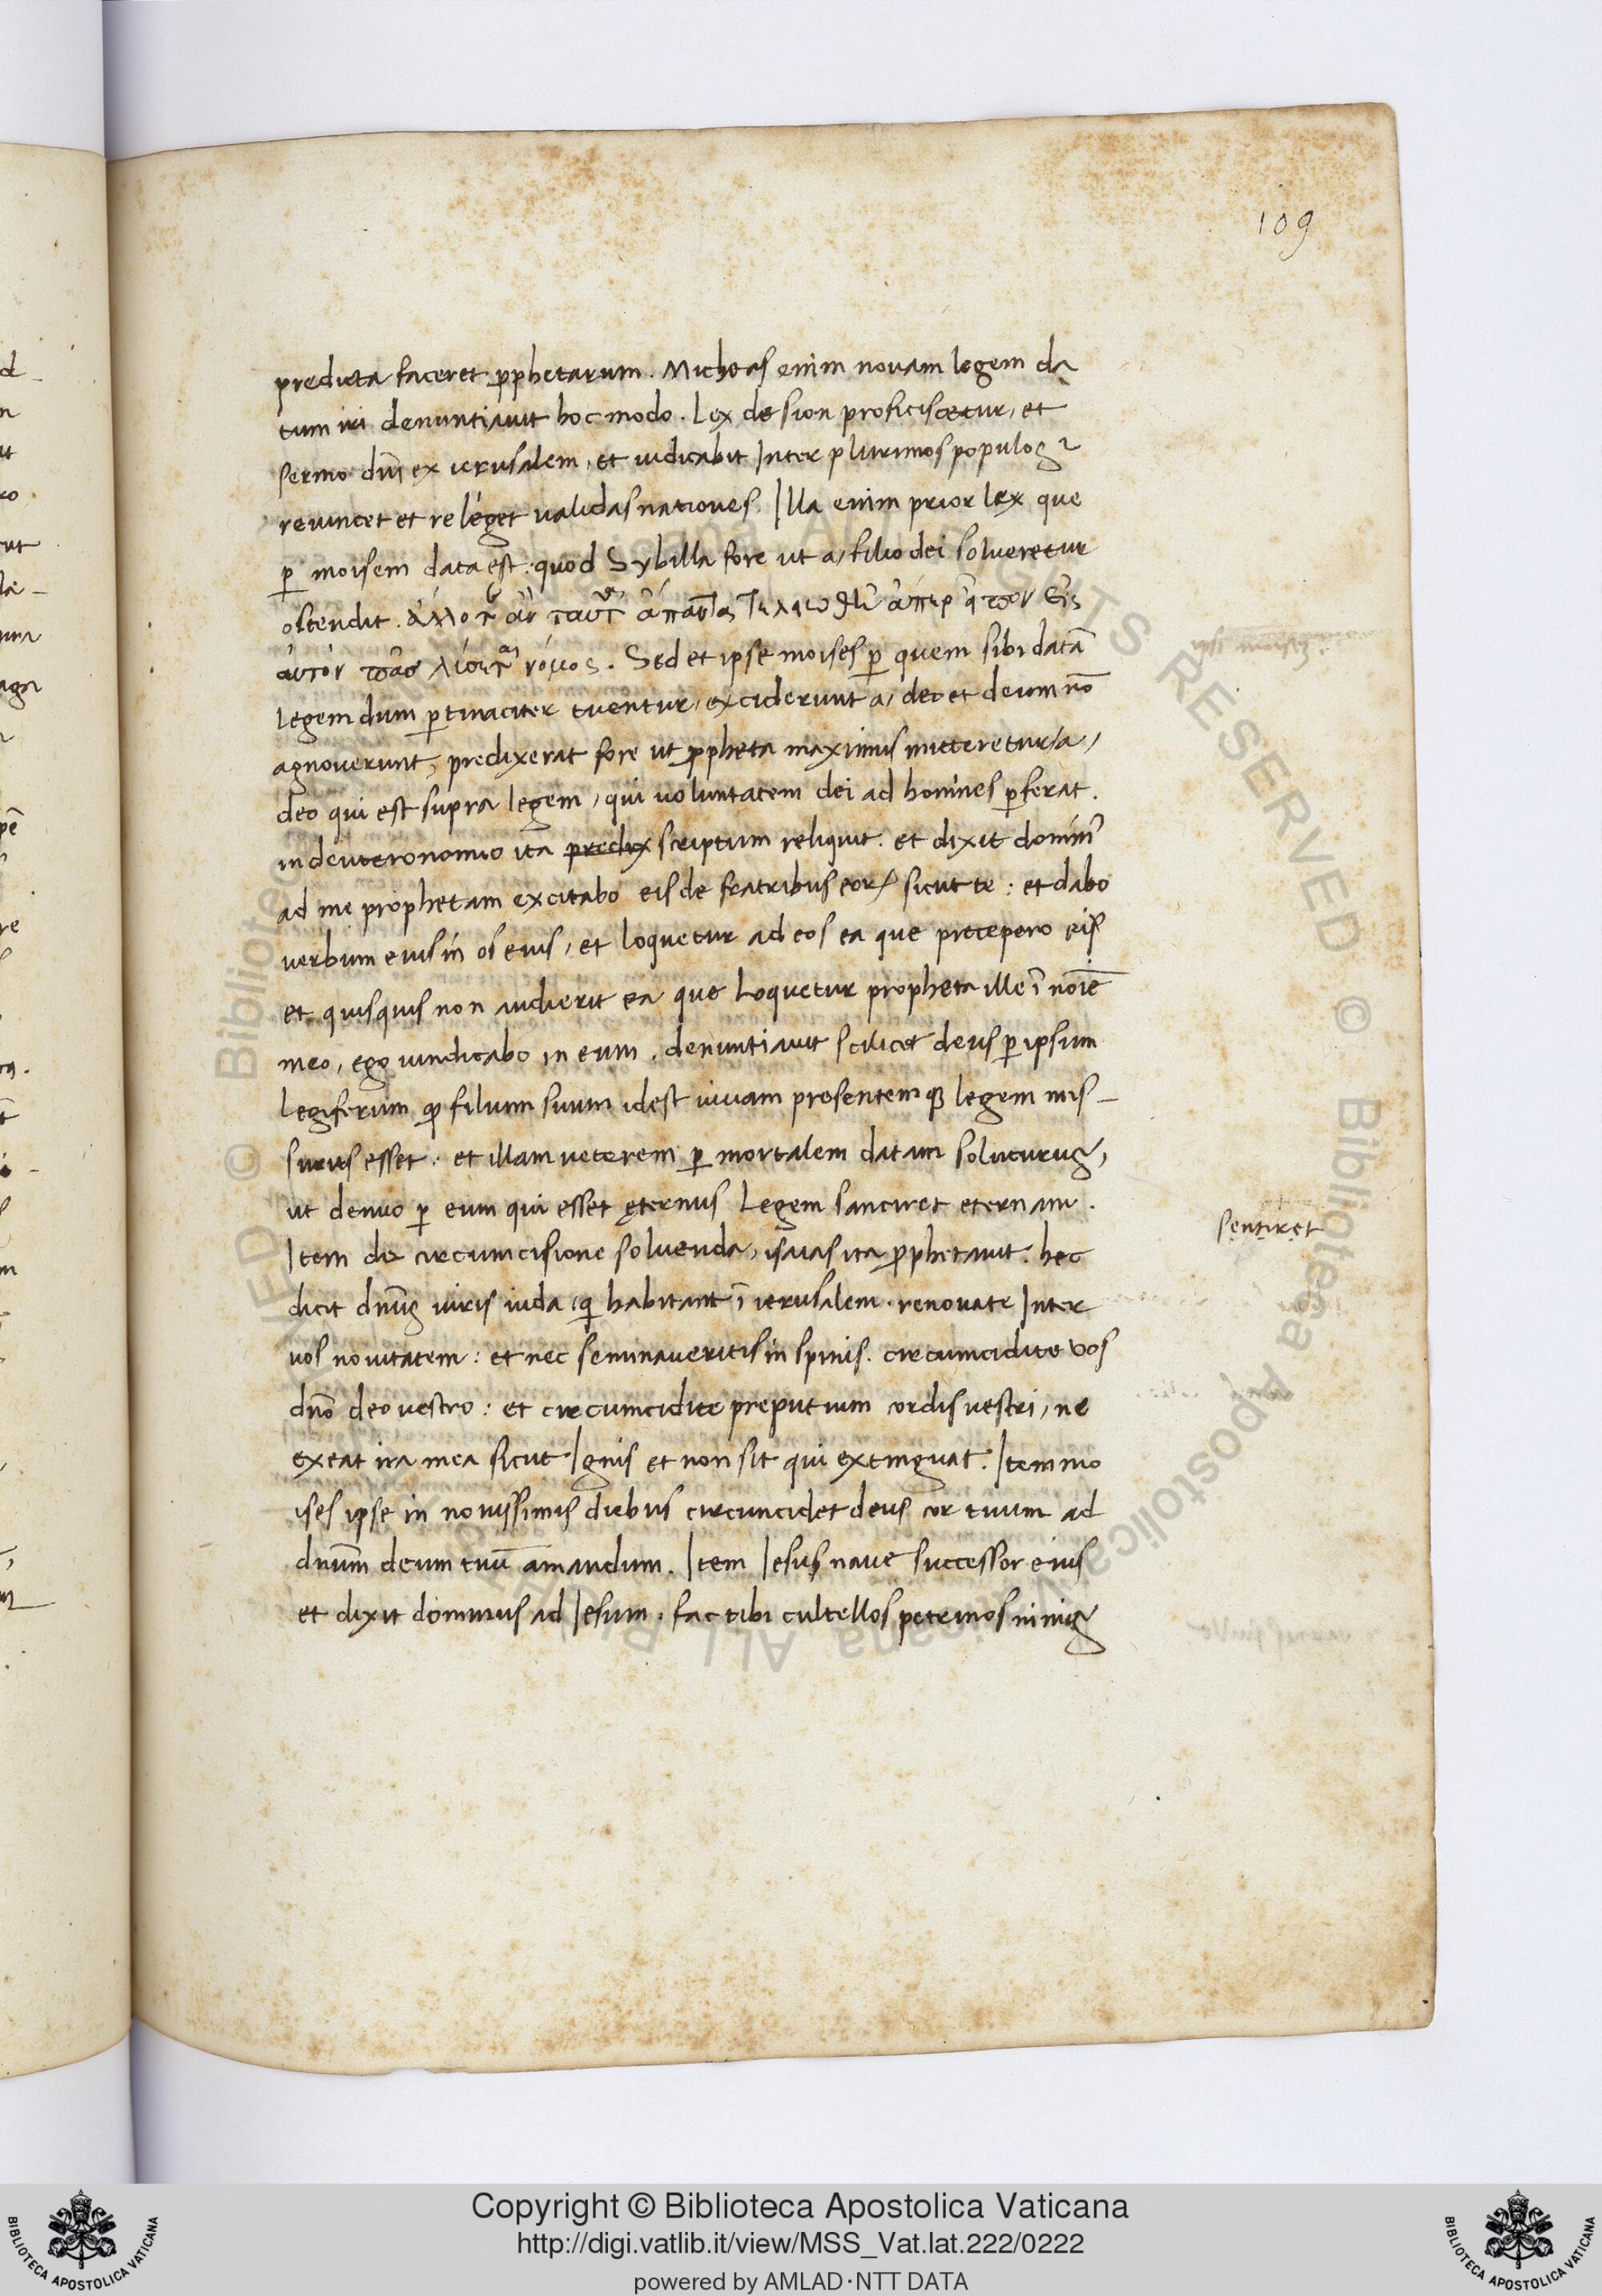 109
predicta faceret ꝓphetarum. Micheas enim novam legem da
tum iri denuntiavit hoc modo. Lex de sion proficiscetur, et
sermo dn̄i ex ierusalem, et iudicabit Inter plurimos populos ⁊
revincet et releget validas nationes. Illa enim prior lex que
ꝑ moisem data est: quod Sybilla fore ut a, filio dei solveretur
ostendit. ἀλλ' ὅτε ἂν ταῦτα ἅπαντα τελειωθῇ ἅπερ εἶπον εἰς
αὐτὸν πᾶς λύεται νόμος. Sed et ipse moises ꝑ quem sibi datā
legem dum ꝑtinaciter tuentur, exciderunt a, deo et deum nō
agnoverunt, predixerat fore ut ꝓpheta maximus mitteretur a,
deo qui est supra legem, qui voluntatem dei ad homines ꝑferat.
in deuteronomio ita predix scriptum reliquit. et dixit domin᾽
ad me prophetam excitabo eis de fratribus eoꝝ sicut te: et dabo
verbum eius in os eius, et loquetur ad eos ea que precepero eis
et quisquis non audierit ea que loquetur propheta ille ī noīe
meo, ego vindicabo in eum. denuntiavit scilicet deus ꝑ ipsum
legiferum ꝙ filium suum idest vivam presentemqꝫ legem mis-
surus esset: et illam veterem ꝑ mortalem datam soluturus,
ut denuo ꝑ eum qui esset ęternus Legem sanciret eternam.
sentiret
Item de circumcisione solvenda, isaias ita ꝓphetavit. hec
dicit dn̄us viris iuda, q̇ habitant ī ierusalem. renovate Inter
vos novitatem: et nec seminaveritis in spinis. circumcidite vos
dn̄o deo vestro: et circumcidite preputium cordis vestri, ne
exeat ira mea sicut Ignis et non sit qui extinguat. Item mo
ises ipse in novissimis diebus circuncidet deus cor tuum ad
dn̄um deum tuū amandum. Item Iesus nave successor eius
et dixit dominus ad Iesum. fac tibi cultellos petrinos nimis
Copyright © Biblioteca Apostolica Vaticana
http://digi.vatlib.it/view/MSS_Vat.lat.222/0222
powered by AMLAD·NTT DATA